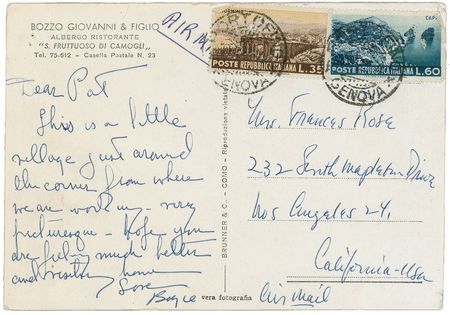 BOZZO GIOVANNI & FIGLIO
ALBERGO RISTORANTE
"S. FRUTTUOSO DI CAMOGLI„
Tel. 75-612 - Casella Postale N. 23
AIR MAIL
POSTE REPUBBLICA ITALIANA L. 35
CAPRI
POSTE REPUBBLICA ITALIANA L. 60
GENOVA
GENOVA
Dear Pat
This is a little
village just around
the corner from where
we are working - very
picturesque - Hope you
are feeling much better
and visiting home
Love
Mrs. Frances Rose
232 South Mapleton Drive
Los Angeles 24,
California - Usa
Air Mail
BRUNNER & C. - COMO - Riproduzione vietata
vera fotografia